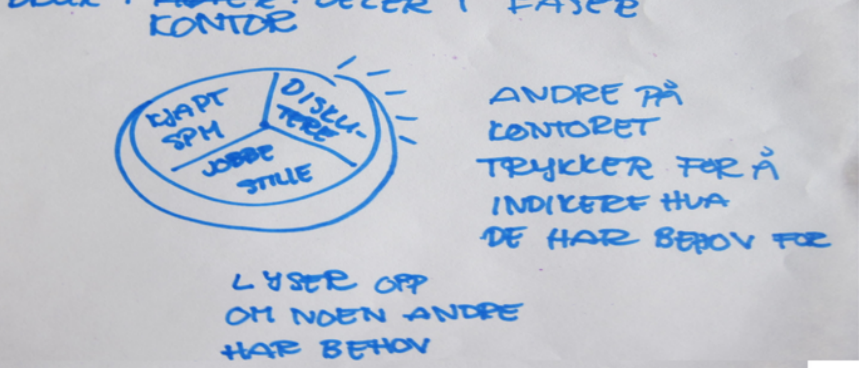 I FASER
KONTOR
KJAPT
SPM
DISKU-
TERE
JOBBE
STILLE
ANDRE PÅ
KONTORET
TRYKKER FOR Å
INDIKERE HVA
DE HAR BEHOV FOR
LYSER OPP
OM NOEN ANDRE
HAR BEHOV